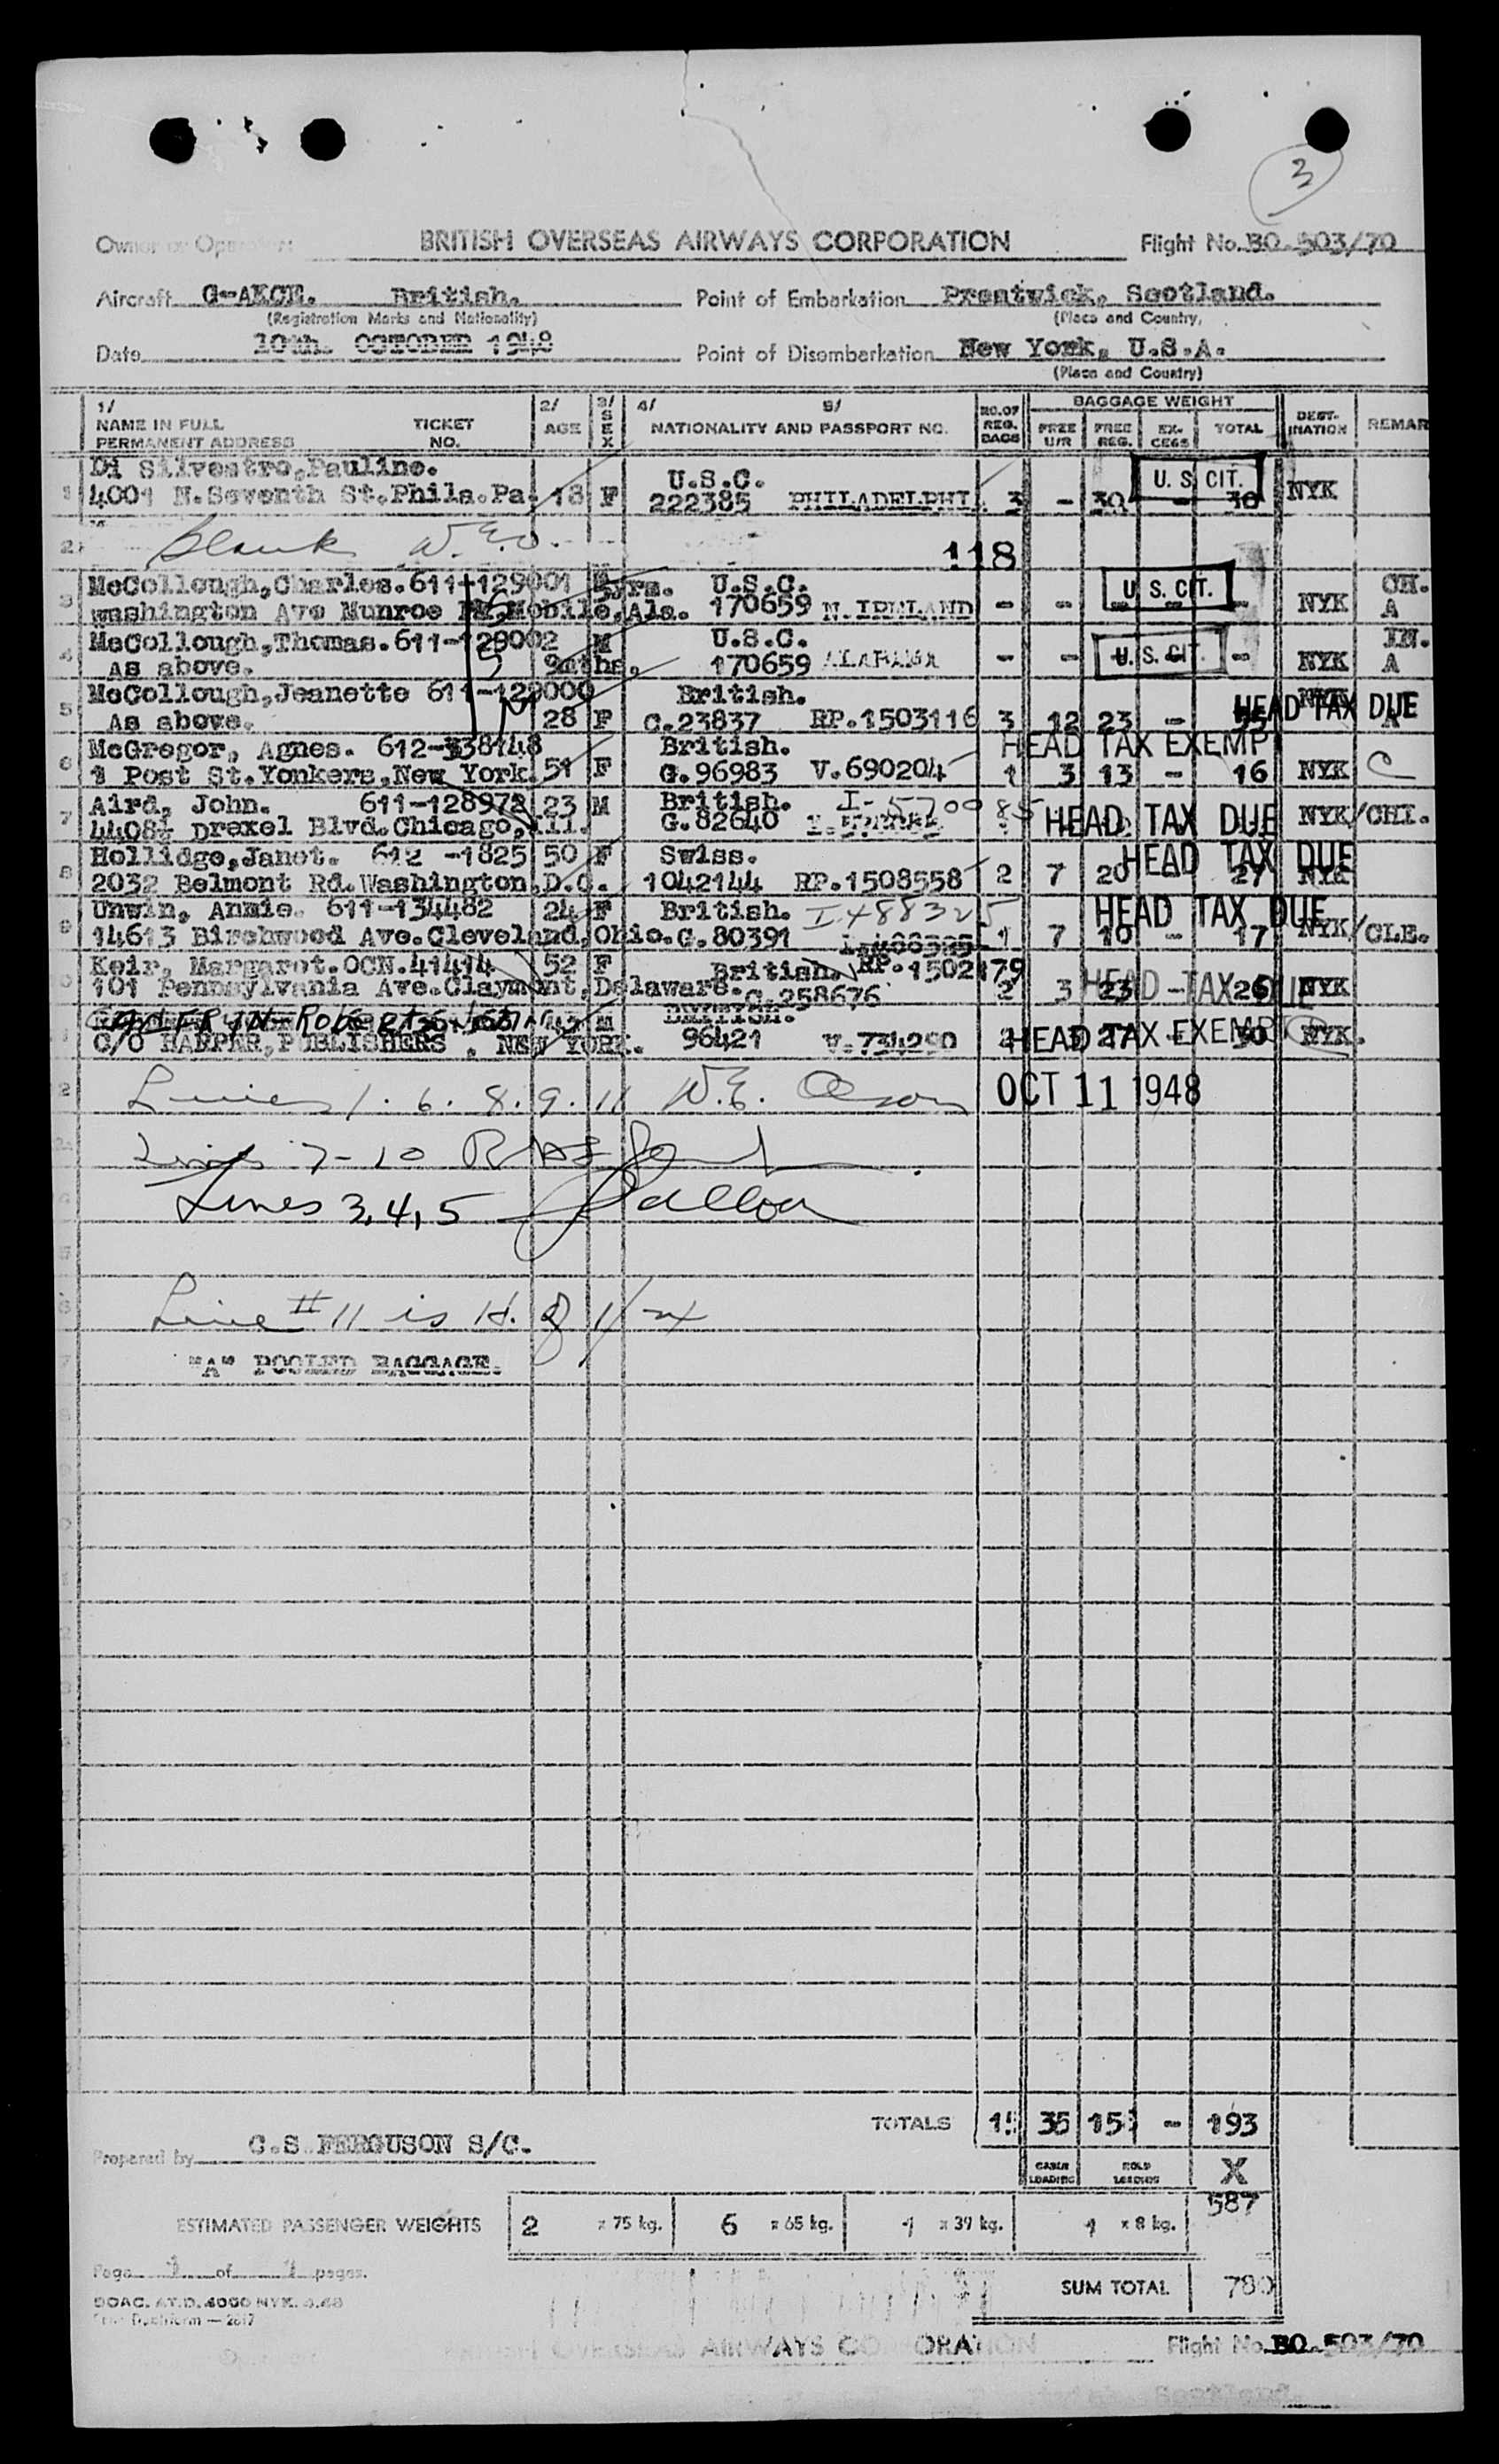 3
Owner or Operator: BRITISH OVERSEAS AIRWAYS CORPORATION Flight No. BO. 503/70
Aircraft British. Point of Embarkation Prestwick, Scotland.
(Registration Marks and Nationality) (Place and Country)
Date 10th. OCTOBER 1948 Point of Disembarkation New York, U.S.A.
(Place and Country)
1/ NAME IN FULL PERMANENT ADDRESS TICKET NO. 2/ AGE 3/ SEX 4/ 5/ NATIONALITY AND PASSPORT NO. NO. OF REG. BAGS BAGGAGE WEIGHT FREE U/R FREE REG. EX-CESS TOTAL DEST-INATION REMAR
Di Silvestro, Pauline. U.S.C. U. S. CIT.
1 4001 N. Seventh St. Phila. Pa. 18 F 222385 PHILADELPHI 3 - 30 - 30 NYK
2 Blank W.E.O. 118
McCollough, Charles. 611-129001 U.S.C. U. S. CIT. CH.
3 Washington Ave Munroe Mobile, Ala. 5yrs. 170659 N. IRELAND - - - - NYK A
McCollough, Thomas. 611-129002 M U.S.C. U. S. CIT. IN.
4 As above. 9mths. 170659 ALABAMA - - - - NYK A
McCollough, Jeanette 611-129000 British. NYK
5 As above. 28 F C.23837 RP.1503116 3 12 23 - HEAD TAX DUE A
McGregor, Agnes. British. HEAD TAX EXEMPT
6 1 Post St. Yonkers, New York. 51 F G.96983 V.690204 1 3 13 - 16 NYK C
Aird, John. 611-128972 23 M British. I-570085
7 4408½ Drexel Blvd. Chicago, Ill. G.82640 HEAD TAX DUE NYK/CHI.
Hollidge, Janet. 612 -1825 50 F Swiss. HEAD TAX DUE
8 2032 Belmont Rd. Washington, D.C. 1042144 RP.1508558 2 7 20 - 27 NYK
Unwin, Annie. 611-134482 24 F British. I 488325 HEAD TAX DUE
9 14613 Birchwood Ave. Cleveland, Ohio. G.80391 I.488325 1 7 10 - 17 NYK/CLE.
Keir, Margaret. OCN.41414 52 F British. RP.1502179
101 Pennsylvania Ave. Claymont, Delaware. C.258676 2 3 23 - 26 HEAD TAX DUE NYK
M BRITISH.
C/O HARPER, PUBLISHERS, NEW YORK. 96421 V.734290 2 3 27 - 30 HEAD TAX EXEMPT NYK.
Lines 1. 6. 8. 9. 11 W.E. Olson OCT 11 1948
Lines 7-10
Lines 3,4,5
Line #11 is
"A" POOLED BAGGAGE.
TOTALS 35 - 193
Prepared by C.S. FERGUSON S/C.
CABIN LOADING HOLD LOADING X
587
ESTIMATED PASSENGER WEIGHTS 2 x 75 kg. 6 x 65 kg. 1 x 39 kg. 1 x 8 kg.
Page 1 of 1 pages.
SUM TOTAL 780
BOAC. A.T.D. 4000 NYK.
BRITISH OVERSEAS AIRWAYS CORPORATION Flight No. BO. 503/70